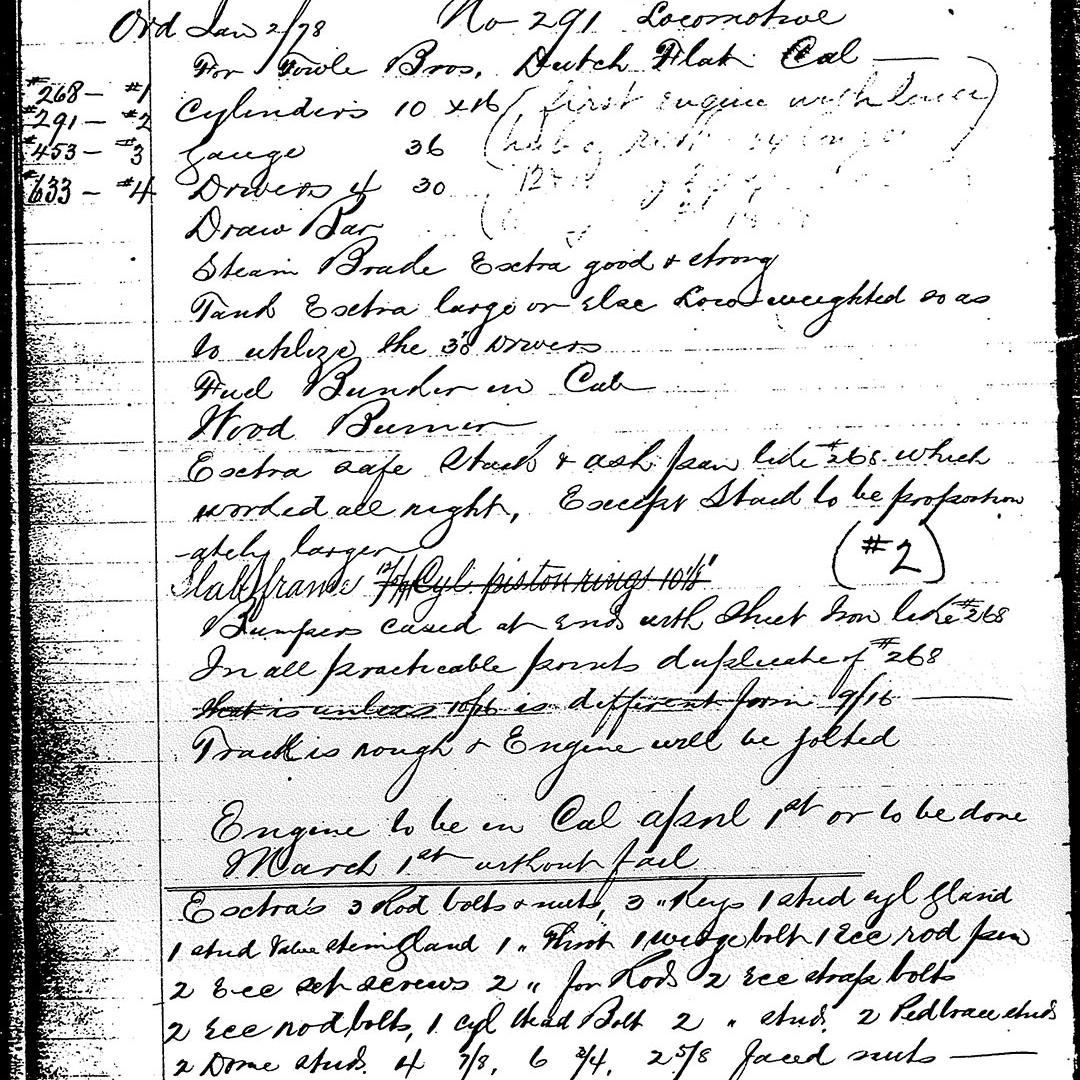 Ord Jan 2/78 No 291 Locomotive
For Towle Bros. Dutch Flat Cal —
#268 – #1
#291 – #2
#453 – #3
#633 – #4
Cylinders 10 x 16 (first engine with
Gauge 36
Drivers 4 30
Draw Bar
Steam Brake Extra good & strong
Tank Extra large or Else Low weighted so as
to utilize the 30 Drivers
Fuel Bunker in Cab
Wood Burner
Extra safe Stack & ash pan like #268 which
worked all right, Except Stack to be proportion
-ately larger
(#2)
Slab frame Cyl piston rings 10 1/8"
Bumpers cased at Ends with Sheet Iron like #268
In all practicable points duplicate of #268
that is unless 10/16 is different from 9/16 —
Track is rough & Engine will be jolted
Engine to be in Cal April 1st or to be done
March 1st without fail
Extra's 3 Rod bolts & nuts, 3 " Keys 1 stud cyl gland
1 stud Valve stem gland 1 " Throt 1 wedge bolt 1 Ecc rod pin
2 Ecc set screws 2 " for Rods 2 Ecc strap bolts
2 Ecc rod bolts, 1 Cyl Head Bolt 2 " stud, 2 Ped brace studs
2 Dome studs. 4 7/8, 6 3/4, 2 5/8 faced nuts —